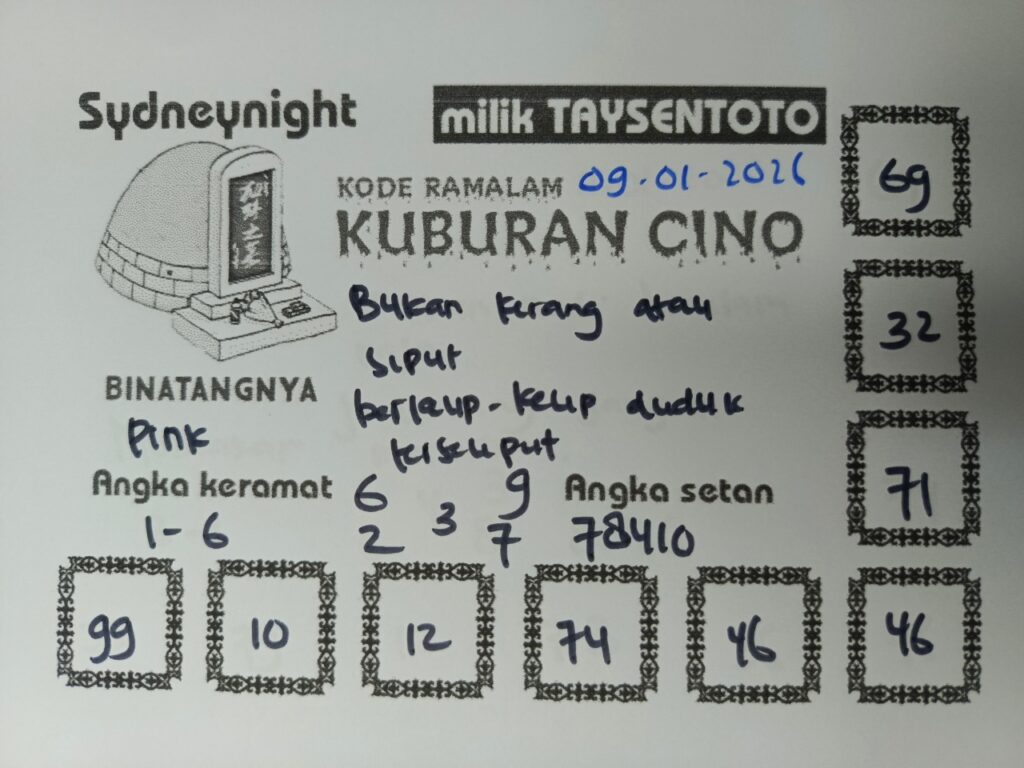 Sydneynight
milik TAYSENTOTO
KODE RAMALAM 09-01-2026
KUBURAN CINO
69
32
71
Bukan kerang atau
siput
berkelip-kelip duduk
terselimput
BINATANGNYA
Pink
Angka keramat
1-6
6 9
2 3 7
Angka setan
78410
99 10 12 74 46 46